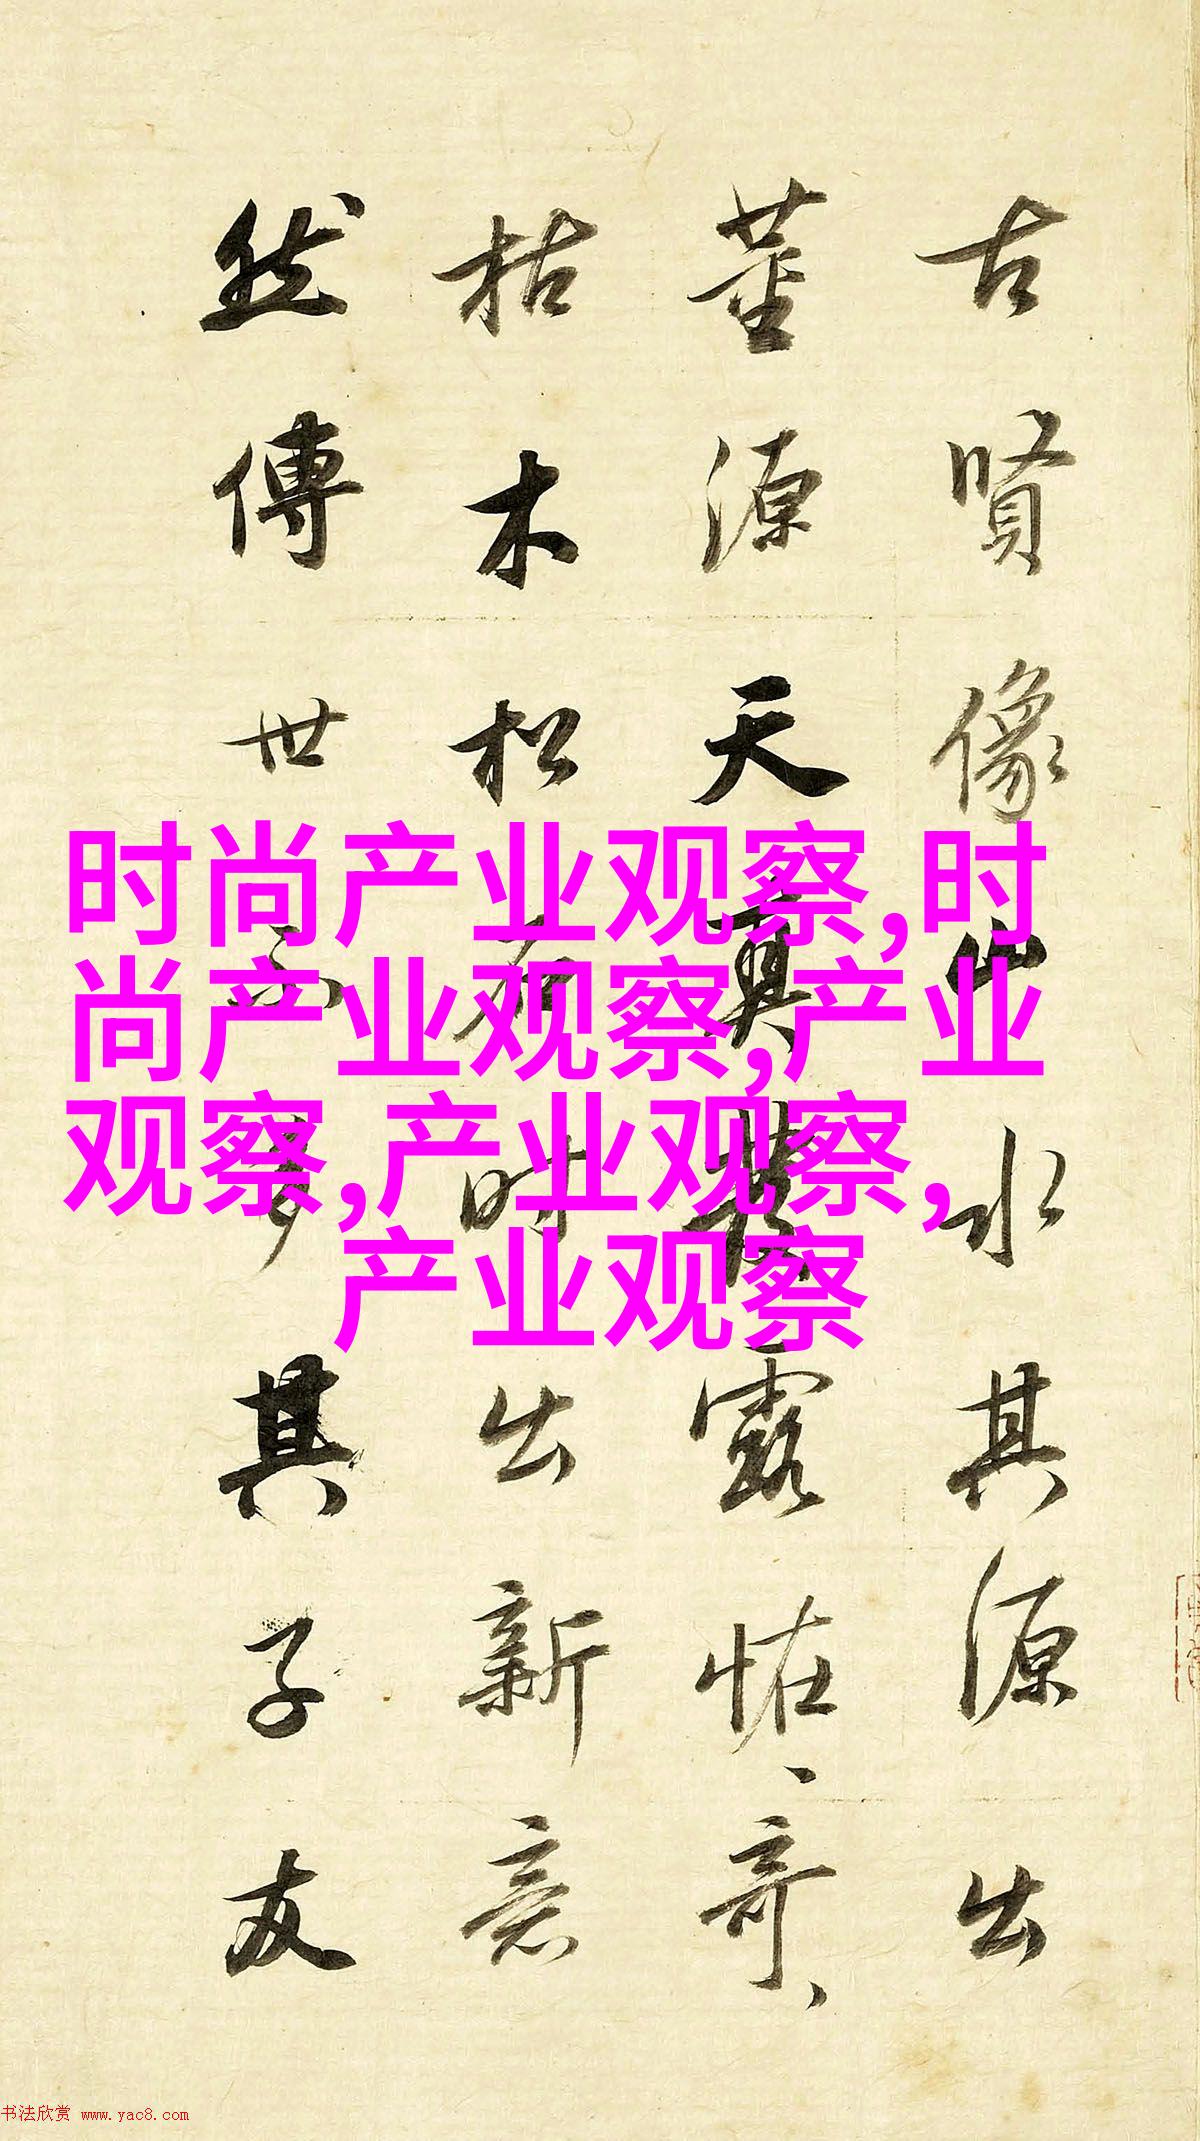 古賢像山水其源出
董源天真叢露恠、奇、
枯木松石時出新意
然傳世不多其子友
时尚产业观察,时
尚产业观察,产业
观察,产业观察,
产业观察
书法欣赏 www.yac8.com